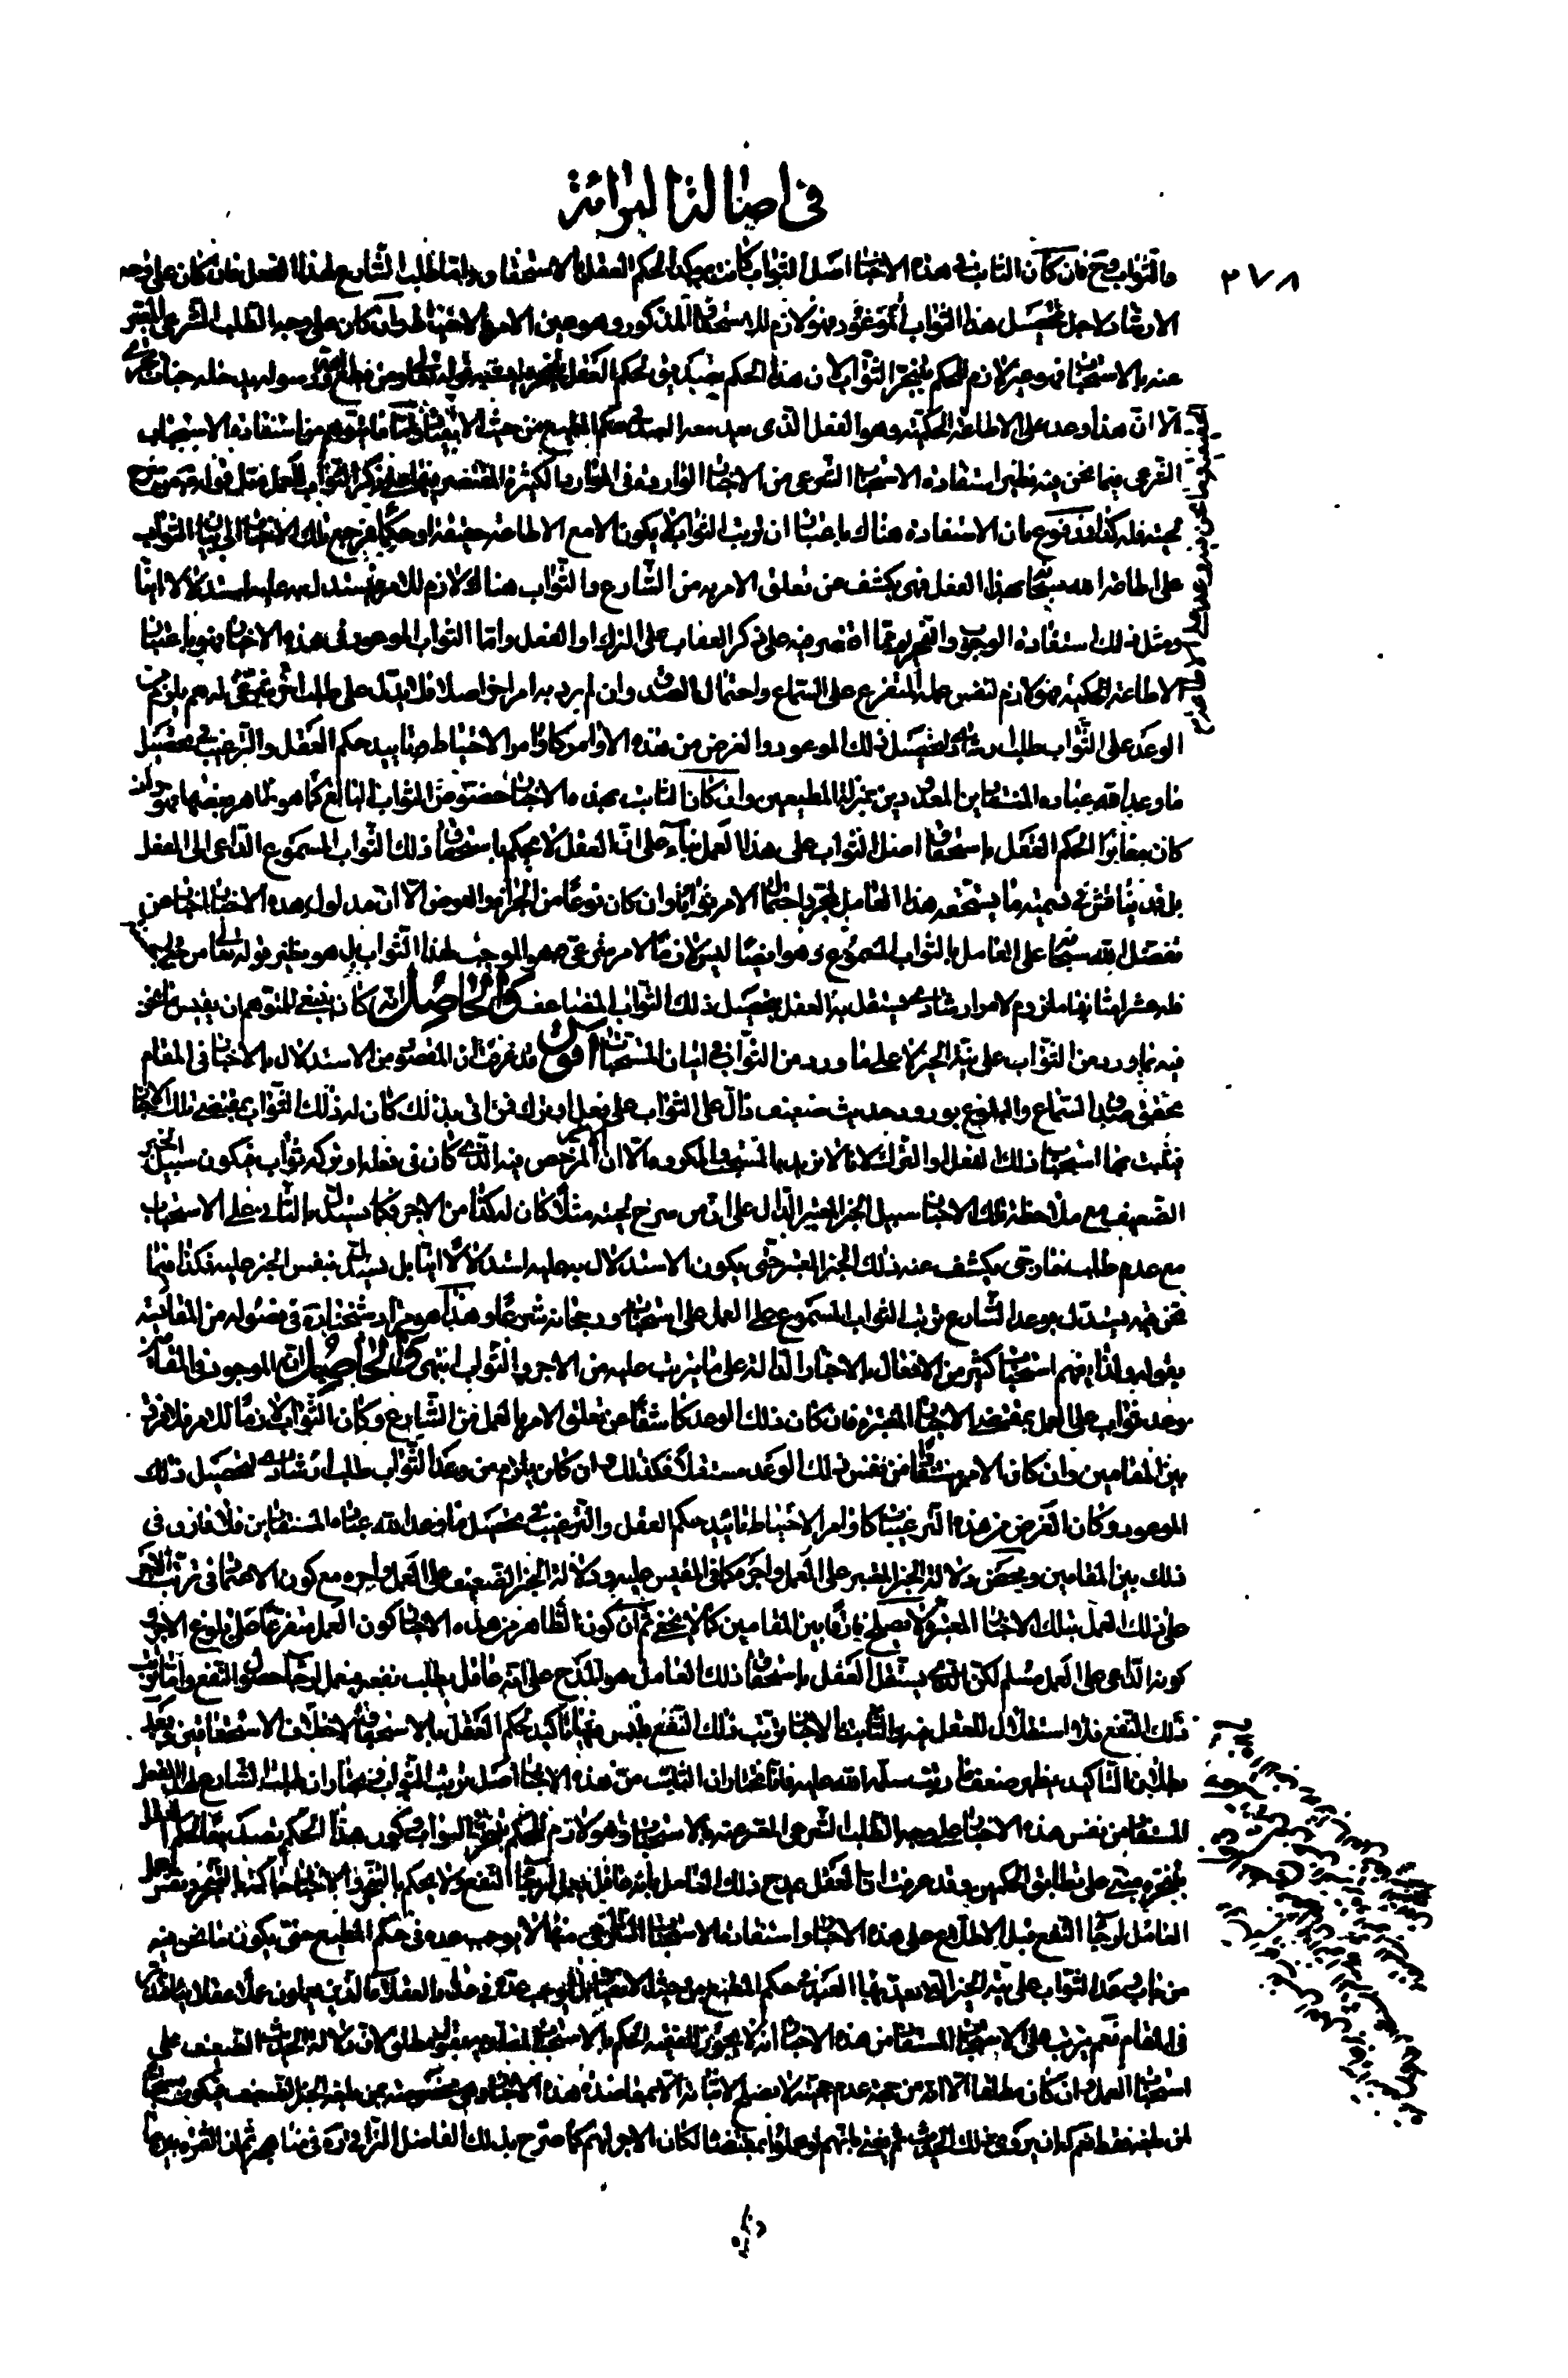 في اصالة البرائة
٣٧٨
والثواب وح فان كان الثابت في هذه الاخبار اصل الثواب كانت مؤكدة لحكم العقل بالاستحقاق واما طلب الشارع لهذا الفعل فان كان على وجه
الارشاد لاجل تحصيل هذا الثواب الموعود فهو لازم للاستحقاق المذكور وهو عين الامر بالاحتياط وان كان على وجه الطلب الشرعي المعبر
عنه بالاستحباب فهو غير لازم للحكم بتنجز الثواب لان هذا الحكم تصديق لحكم العقل
الا ان هذا وعد على الاطاعة الحكمية وهو الفعل الذي يعد معه العبد في حكم المطيع من حيث الانقياد واما ما يتوهم من استفادة الاستحباب
الشرعي فيما نحن فيه نظير استفادة الاستحباب الشرعي من الاخبار الواردة في الموارد الكثيرة المقتصر فيها على ذكر الثواب للعمل مثل قوله من سرح
لحيته فله كذا مدفوع بان الاستفادة هناك باعتبار ان ترتب الثواب لا يكون الا مع الاطاعة حقيقة او حكما فمرجع تلك الاخبار الى بيان الثواب
على اطاعة الله سبحانه بهذا الفعل فهي يكشف عن تعلق الامر به من الشارع والثواب هناك لازم للامر فيستدل به عليه استدلالا انيا
ومثل ذلك استفادة الوجوب والتحريم مما اقتصر فيه على ذكر العقاب على الترك او الفعل واما الثواب الموعود في هذه الاخبار فهو باعتبار
الاطاعة الحكمية فهو لازم لنفس عمله المتفرع على السماع واحتمال الصدق وان لم يرد به امر اخر اصلا فلا يدل على طلب شرعي اخر له نعم يلزم من
الوعد على الثواب طلب ارشادي لتحصيل ذلك الموعود والغرض من هذه الاوامر كاوامر الاحتياط تاييد حكم العقل والترغيب في تحصيل
ما وعد الله عباده المنقادين المعدودين بمنزلة المطيعين وان كان الثابت بهذه الاخبار خصوص الثواب البالغ كما هو ظاهر بعضها فهو وان
كان مغايرا لحكم العقل باستحقاق اصل الثواب على هذا العمل بناء على ان العقل لا يحكم باستحقاق ذلك الثواب المسموع الداعي الى الفعل
بل قد يناقش في تسمية ما يستحقه هذا العامل لمجرد احتمال الامر ثوابا وان كان نوعا من الجزاء والعوض الا ان مدلول هذه الاخبار اخبار عن
تفضل الله سبحانه على العامل بالثواب المسموع وهو ايضا ليس لازما لامر شرعي هو الموجب لهذا الثواب بل هو نظير قوله تعالى من جاء بالحسنة
فله عشر امثالها ملزوم لامر ارشادي يستقل به العقل بتحصيل ذلك الثواب المضاعف والحاصل انه كان ينبغي للمتوهم ان يقيس ما نحن
فيه بما ورد من الثواب على نية الخير لا على ما ورد من الثواب في اتيان المستحبات اقول قد عرفت ان المقصود من الاستدلال بالاخبار في المقام
تحقق صدق السماع والبلوغ بورود حديث ضعيف دال على الثواب على فعل او ترك فمن اتى بذلك كان له ذلك الثواب بمقتضى تلك الاخبار
فيثبت بها استحباب ذلك الفعل او الترك لانا لا نريد بالمستحب والمكروه الا ان المرخص فيه الذي كان في فعله او تركه ثواب فيكون سبيل الخبر
الضعيف مع ملاحظة تلك الاخبار سبيل الخبر المعتبر الدال على ان من سرح لحيته مثلا كان له كذا من الاجر فكما يستدل بالثاني على الاستحباب
مع عدم طلب خارجي يكشف عنه ذلك الخبر المعتبر حتى يكون الاستدلال به عليه استدلالا انيا بل يستدل بنفس الخبر عليه فكذا فيما
نحن فيه يستدل بوعد الشارع ترتب الثواب المسموع على العمل على استحبابه ورجحانه شرعا وهذا هو مراد شيخنا ره في فصوله من المقايسة
بقوله ولذا يفهم استحباب كثير من الافعال بالاخبار الدالة على ما يترتب عليه من الاجر والثواب انتهى والحاصل ان الموجود في المقامين
وعد ثواب على العمل بمقتضى الاخبار المعتبرة فان كان ذلك الوعد كاشفا عن تعلق الامر بالعمل من الشارع وكان الثواب لازما لذلك الامر فلا فرق
بين المقامين وان كان الامر مستفادا من نفس ذلك الوعد مستقلا فكذلك وان كان يلزم من وعد الثواب طلب ارشادي لتحصيل ذلك
الموعود وكان الغرض من هذه الترغيبات كاوامر الاحتياط تاييد حكم العقل والترغيب في تحصيل ما وعد الله عباده المنقادين فلا فارق في
ذلك بين المقامين ومحض دلالة الخبر المعتبر على العمل واجره كما في المقيس عليه ودلالة الخبر الضعيف على العمل واجره مع كون الاعتماد في ترتب الاجر
على ذلك العمل بتلك الاخبار المعتبرة لا يصلح فارقا بين المقامين كما لا يخفى ثم ان كون الظاهر من هذه الاخبار كون العمل متفرعا على بلوغ الاجر و
كونه الداعي على العمل مسلم لكن الذي يستقل العقل باستحقاق ذلك العامل هو المدح على انه عاقل يطلب نفعه بعمل لرجاء حصول النفع واما ترتب
ذلك النفع فلا استقلال للعقل فيه والثابت بالاخبار ترتب ذلك النفع فليس فيها تاكيد لحكم العقل بالاستحقاق لاختلاف الاستحقاقين وبعد
بطلان التاكيد يظهر ضعف ما رتبه سلمه الله عليه فانا نختار ان الثابت من هذه الاخبار اصل ترتب الثواب ونختار ان طلب الشارع لهذا الفعل
المستفاد من نفس هذه الاخبار على وجه الطلب الشرعي المعبر عنه بالاستحباب وهو لازم للحكم بتنجز الثواب وكون هذا الحكم تصديقا لحكم العقل
بتنجزه مبني على تطابق الحكمين وقد عرفت ان العقل يمدح ذلك العامل بانه عاقل يعمل لرجاء النفع ولا يحكم بالتنجز والاخبار حاكمة بالتنجز ونفس عمل
العامل لرجاء النفع قبل الاطلاع على هذه الاخبار واستفادة الاستحباب الشرعي منها لا يوجب عده في حكم المطيع حتى يكون ما نحن فيه
من باب وعد الثواب على نية الخير التي يعد معها العبد في حكم المطيع من حيث الانقياد بل يوجب عده في عداد العقلاء الذين يعملون عملا عقلائيا
في المقام نعم يترتب على الاستحباب المستفاد من هذه الاخبار انه لا يجوز للفقيه الحكم بالاستحباب لمقلده بقول مطلق لان دلالة الحديث الضعيف على
استحباب العمل وان كان مطلقا الا انه من جهة عدم حجيته لا يصلح لاثباته الا بمعاضدة هذه الاخبار وهي مختصة بمن بلغه الخبر الضعيف فيكون مستحبا
لمن بلغه فقط نعم له ان يروي ذلك الحديث ثم يفتي بانهم لو عملوا بمقتضاه لكان الاجر لهم كما صرح بذلك الفاضل النراقي ره في مناهجه ثم ان الثمرة بينهما